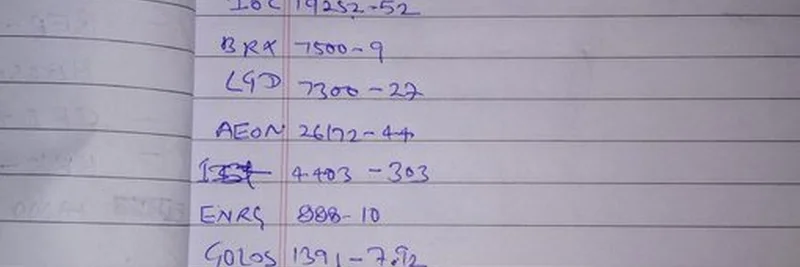 19252-52
BRX 7500-9
LGD 7300-27
AEON 26172-44
4403-303
ENRG 888-10
GOLOS 1391-7.92